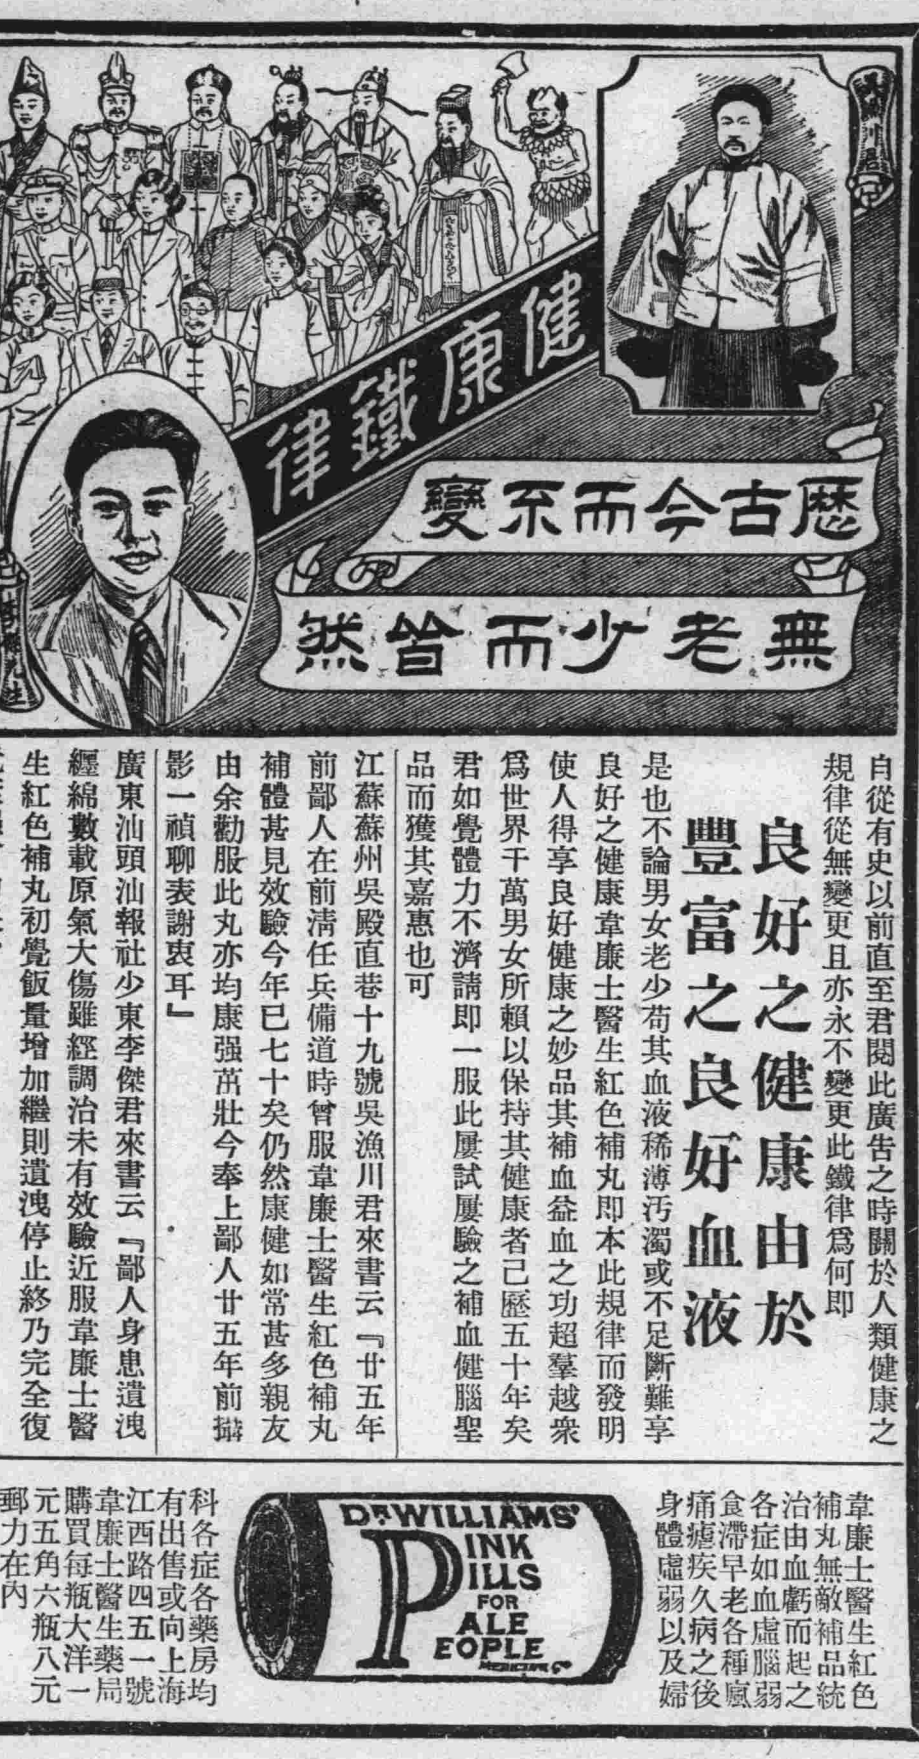 吳漁川君
健康鐵律
歷古今而不變
無老少而皆然
自從有史以前直至君閱此廣告之時關於人類健康之
規律從無變更且亦永不變更此鐵律爲何即
良好之健康由於
豐富之良好血液
是也不論男女老少苟其血液稀薄汚濁或不足斷難享
良好之健康韋廉士醫生紅色補丸即本此規律而發明
使人得享良好健康之妙品其補血益血之功超羣越衆
爲世界千萬男女所賴以保持其健康者已歷五十年矣
君如覺體力不濟請即一服此屢試屢驗之補血健腦聖
品而獲其嘉惠也可
江蘇蘇州吳殿直巷十九號吳漁川君來書云『廿五年
前鄙人在前淸任兵備道時曾服韋廉士醫生紅色補丸
補體甚見效驗今年已七十矣仍然康健如常甚多親友
由余勸服此丸亦均康强茁壯今奉上鄙人廿五年前攝
影一禎聊表謝衷耳』
廣東汕頭汕報社少東李傑君來書云『鄙人身患遺洩
纏綿數載原氣大傷雖經調治未有效驗近服韋廉士醫
生紅色補丸初覺飯量增加繼則遺洩停止終乃完全復
韋廉士醫生紅色
補丸無敵補品統
治由血虧而起之
各症如血虛腦弱
食滯早老各種瘋
痛瘧疾久病之後
身體虛弱以及婦
DR WILLIAMS'
PINK
PILLS
FOR
PALE
PEOPLE
MEDICINE Co
科各症各藥房均
有出售或向上海
江西路四五一號
韋廉士醫生藥局
購買每瓶大洋一
元五角六瓶八元
郵力在內